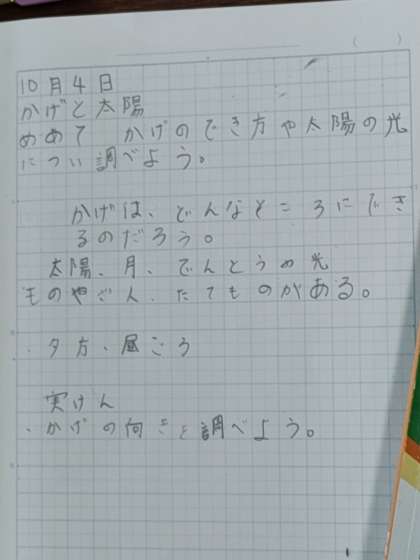 10月4日
かげと太陽
めあて かげのでき方や太陽の光
につい調べよう。
かげは、どんなところにでき
るのだろう。
太陽、月、でんとうの光
ものやざん、たてものがある。
・夕方・昼ごろ
実けん
・かげの向きを調べよう。